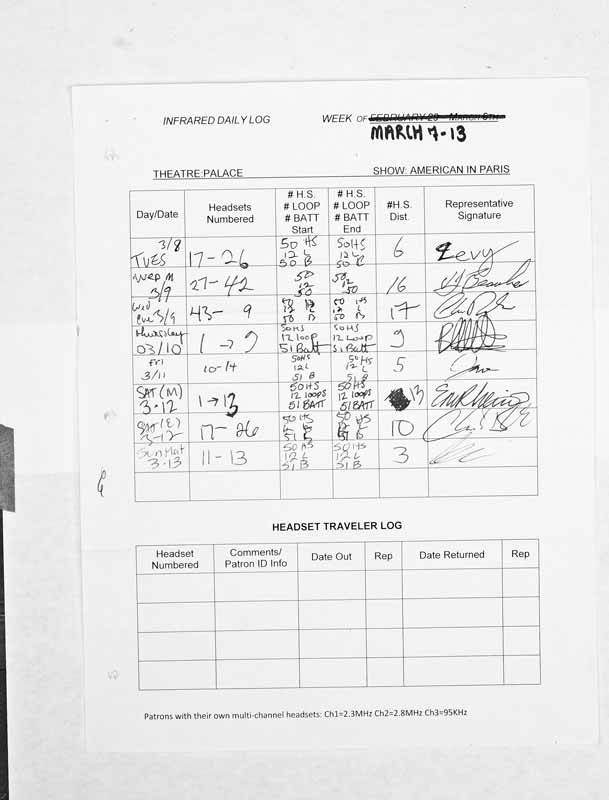 INFRARED DAILY LOG WEEK OF FEBRUARY 29 - MARCH 6TH
MARCH 7-13
THEATRE:PALACE SHOW: AMERICAN IN PARIS
Day/Date
Headsets
Numbered
# H.S.
# LOOP
# BATT
Start
# H.S.
# LOOP
# BATT
End
#H.S.
Dist.
Representative
Signature
3/8
TUES
17-26
50 HS
12 L
50 B
50HS
12 L
50 B
6
Levy
WED M
3/9
27-42
50
12
50
50
12
50
16
Wed
Eve 3/9
43- 9
50 H
12 L
50 B
50 HS
12 L
50 B
17
Thursday
03/10
1 → 9
50HS
12 loop
51 Batt
50HS
12 Loop
51 Batt
9
Fri
3/11
10-14
50HS
12L
51 B
50HS
12 L
51 B
5
SAT (M)
3-12
1 → 13
50HS
12 loops
51 BATT
50HS
12 loops
51 BATT
13
SAT (E)
3-12
17-26
50 HS
L
51
50 HS
L
51
10
Sun Mat
3-13
11-13
50 HS
12 L
51 B
50 HS
12 L
51 B
3
HEADSET TRAVELER LOG
Headset
Numbered
Comments/
Patron ID Info
Date Out
Rep
Date Returned
Rep
Patrons with their own multi-channel headsets: Ch1=2.3MHz Ch2=2.8MHz Ch3=95KHz